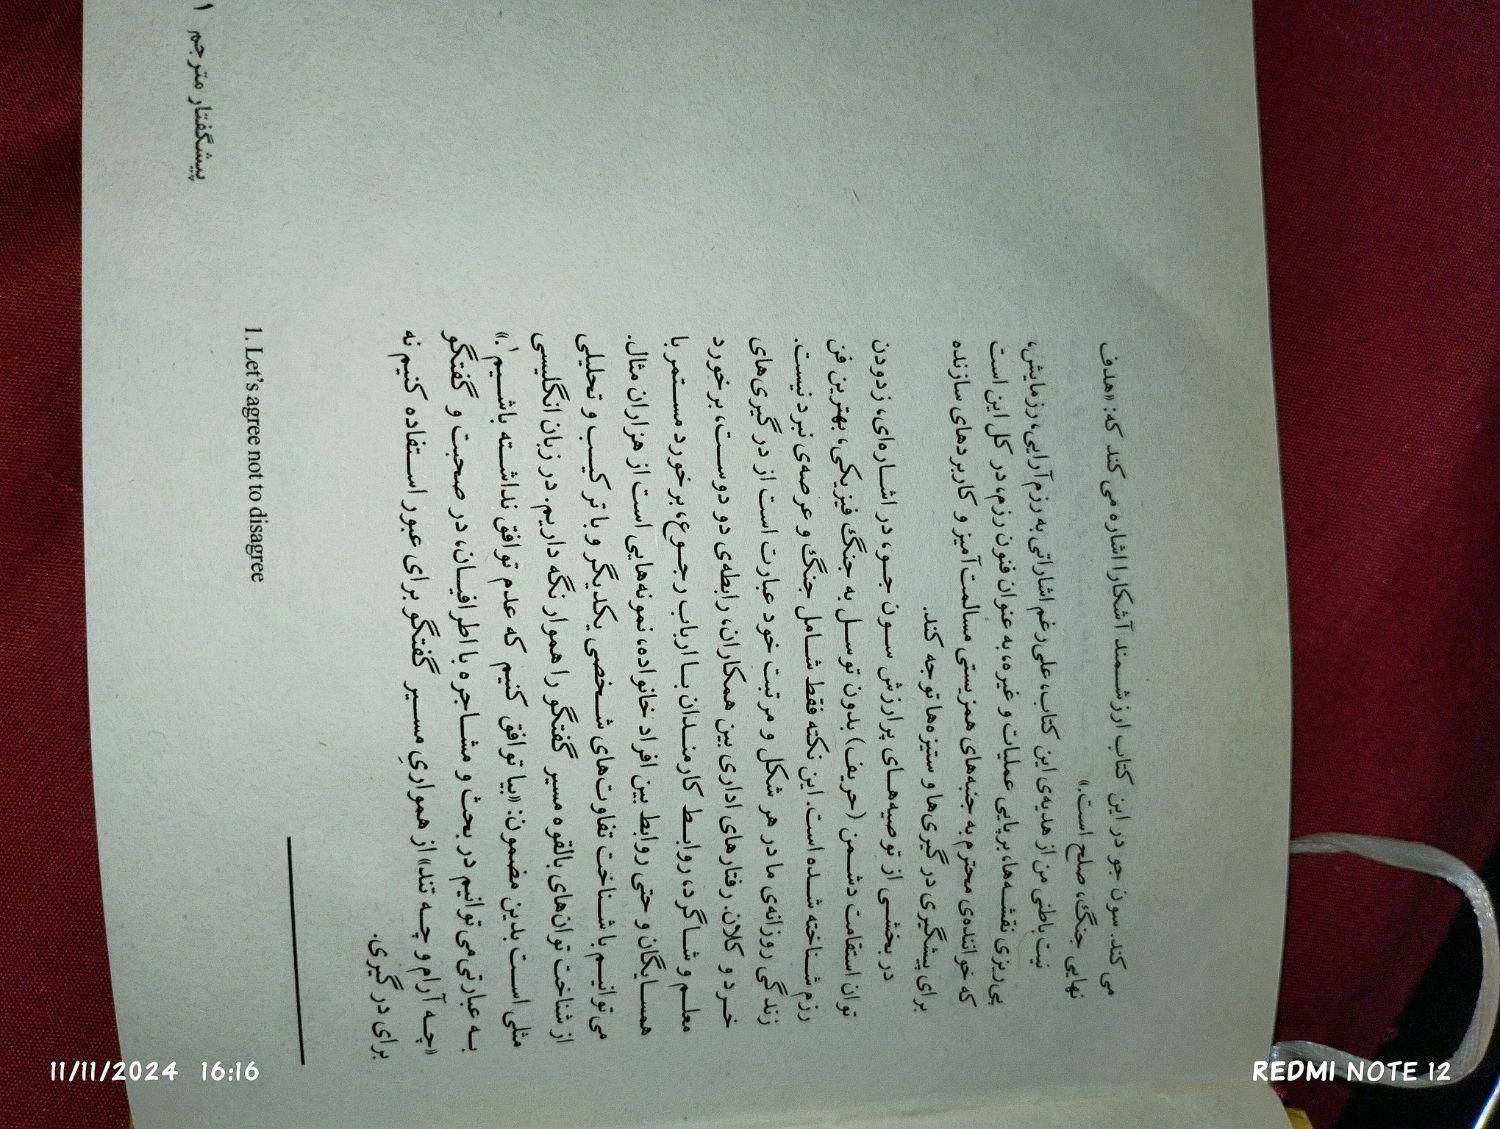 می‌کند. سون جو در این کتاب ارزشمند آشکارا اشاره می‌کند که: «هدف
نهایی جنگ، صلح است.»
نیت باطنی من از هدیه‌ی این کتاب، علی‌رغم اشاراتی به رزم‌آرایی، رزمایش،
پی‌ریزی نقشه‌ها، برپایی عملیات و غیره، به عنوان فنون رزم، در کل این است
که خواننده‌ی محترم به جنبه‌های همزیستی مسالمت‌آمیز و کاربردهای سازنده
برای پیشگیری درگیری‌ها و ستیزه‌ها توجه کند.
در بخشی از توصیه‌های پرارزش سون جو، در اشاره‌ای، زدودن
توان استقامت دشمن (حریف) بدون توسل به جنگ فیزیکی، بهترین فن
رزم شناخته شده است. این نکته فقط شامل جنگ و عرصه‌ی نبرد نیست.
زندگی روزانه‌ی ما در هر شکل و مرتبت خود عبارت است از درگیری‌های
خرد و کلان. رفتارهای اداری بین همکاران، رابطه‌ی دو دوست، برخورد
معلم و شاگرد، روابط کارمندان با ارباب رجوع، برخورد مستمر با
همسایگان و حتی روابط بین افراد خانواده، نمونه‌هایی است از هزاران مثال.
می‌توانیم با شناخت تفاوت‌های شخصی یکدیگر و با ترکیب و تحلیلی
از شناخت توان‌های بالقوه مسیر گفتگو را هموار نگه داریم. در زبان انگلیسی
مثلی است بدین مضمون: «بیا توافق کنیم که عدم توافق نداشته باشیم¹.»
به عبارتی می‌توانیم در بحث و مشاجره با اطرافیان، در صحبت و گفتگو
«چه آرام و چه تند» از همواریِ مسیر گفتگو برای عبور استفاده کنیم نه
برای درگیری.
1. Let's agree not to disagree
پیشگفتار مترجم ۱
11/11/2024 16:16
REDMI NOTE 12